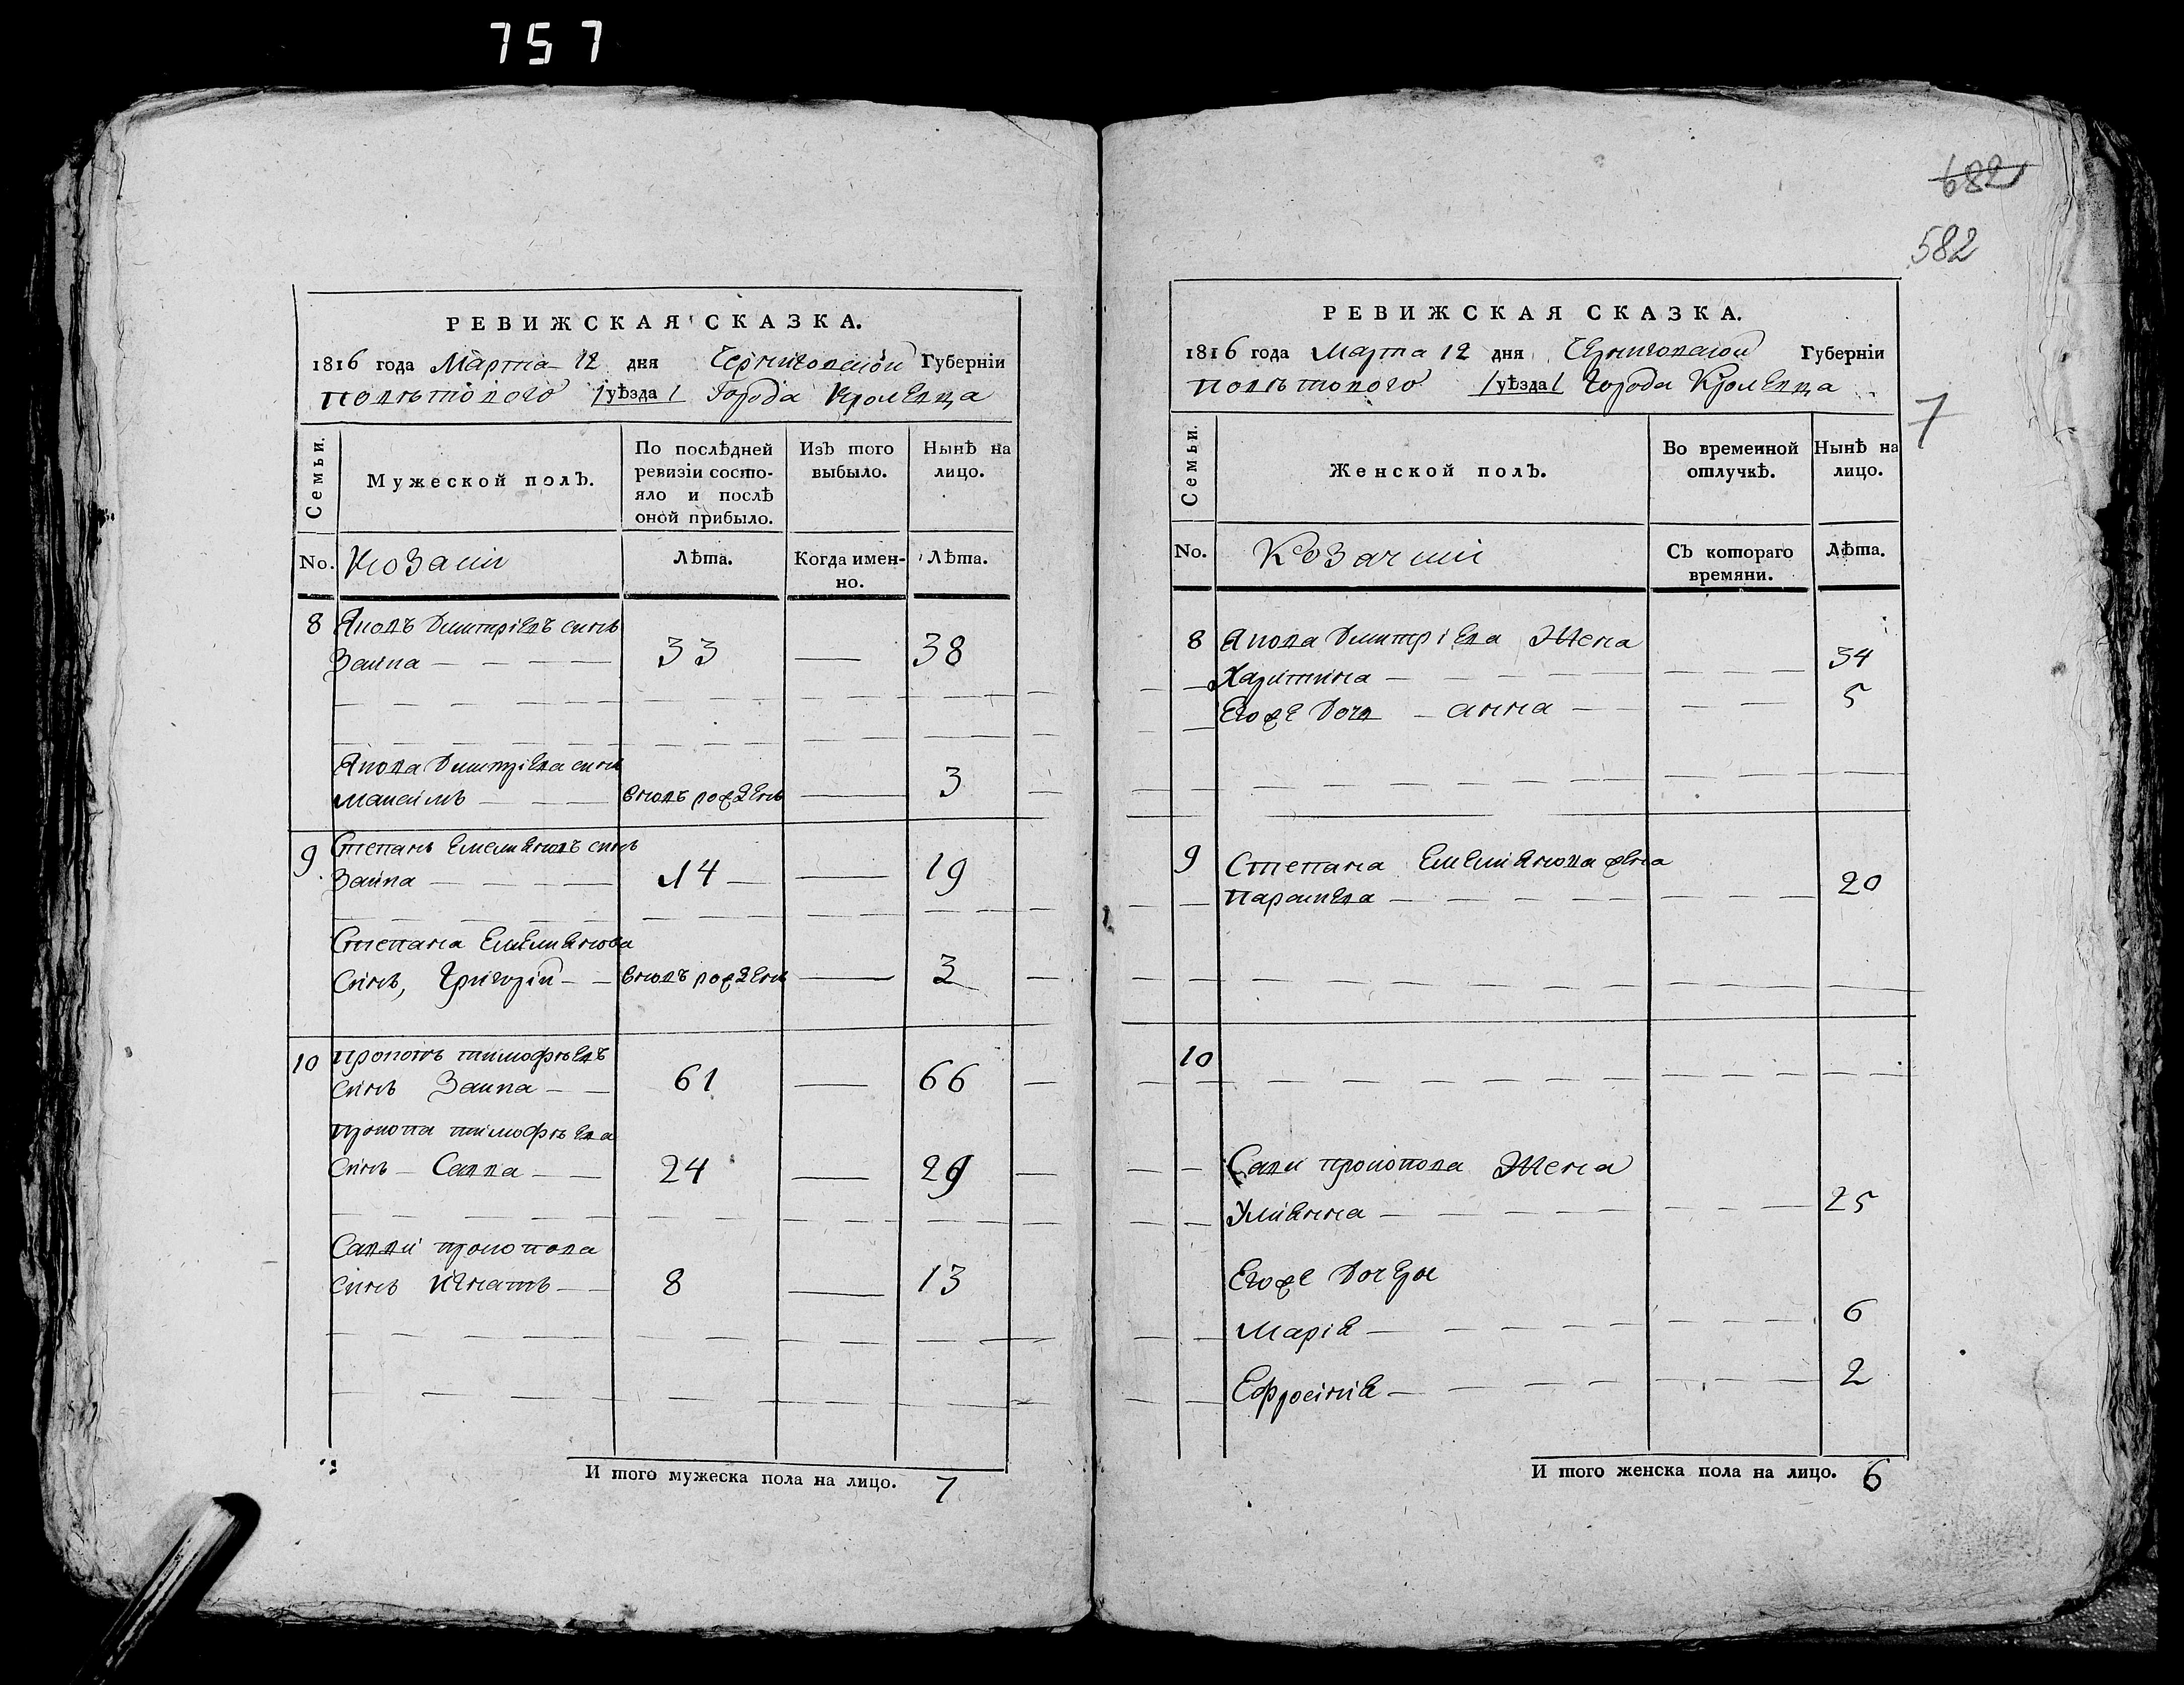 757
РЕВИЖСКАЯ СКАЗКА.
1816 года Марта 12 дня Черниговской Губерніи
Повѣтового /уѣзда/ Города Кролевца
Семьи.
Мужеской полъ.
По послѣдней ревизіи состо-
яло и послѣ
оной прибыло.
Изъ того
выбыло.
Нынѣ на
лицо.
No.
Козаки
Лѣта.
Когда имен-
но.
Лѣта.
8 Яковъ Дмитріевъ синъ
Заика 33 38
Якова Дмитріева синъ
Максимъ вновь рожденъ 3
9 Степанъ Емелияновъ синъ
Заика 14 19
Степана Емелиянова
синъ, Григорій вновь рожденъ 3
10 Прокопъ Тимофѣевъ
синъ Заика 61 66
Прокопа Тимофѣева
синъ Савва 24 29
Саввы Прокопова
синъ Игнатъ 8 13
И того мужеска пола на лицо. 7
682
582
7
РЕВИЖСКАЯ СКАЗКА.
1816 года Марта 12 дня Черниговской Губерніи
Повѣтового /уѣзда/ Города Кролевца
Семьи.
Женской полъ.
Во временной
отлучкѣ.
Нынѣ на
лицо.
No.
Козачки
Съ котораго
времяни.
Лѣта.
8 Якова Дмитріева Жена
Харитина 34
Егоже Дочь Анна 5
9 Степана Емелиянова жена
Параскева 20
10
Савы Прокопова Жена
Улиянна 25
Егоже Дочери
Марія 6
Ефросинія 2
И того женска пола на лицо. 6